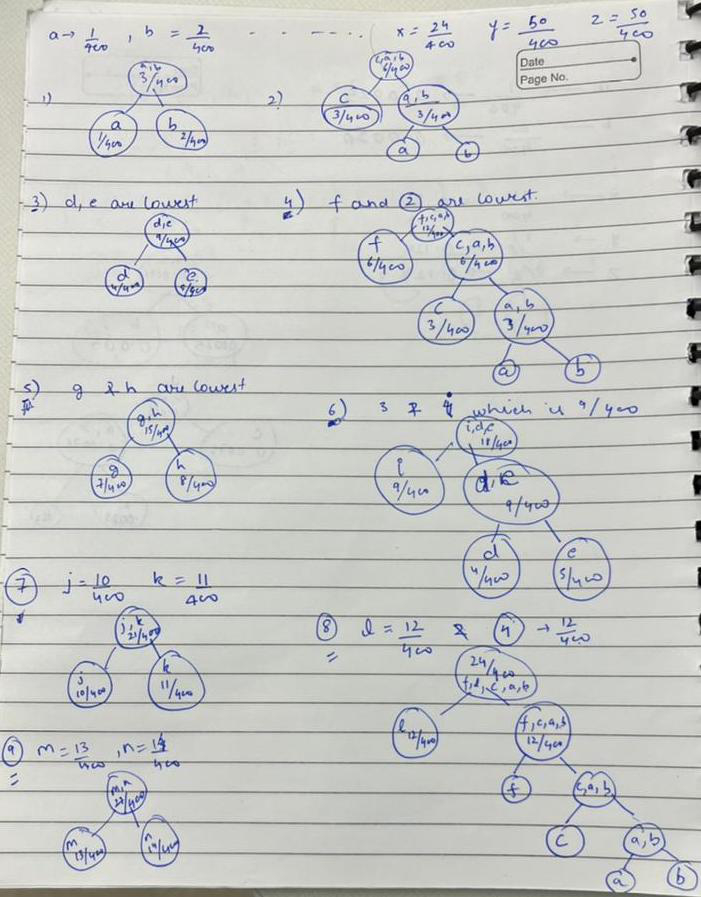 a → 1/400 , b = 2/400 - - - - - .. x = 24/400 y = 50/400 z = 50/400
Date
Page No.
1)
a,b
3/400
a
1/400
b
2/400
2)
c,a,b
6/400
c
3/400
a,b
3/400
a
b
3) d,e are lowest
d,e
9/400
d
4/400
e
4) f and ② are lowest.
f,c,a,b
12/400
f
6/400
c,a,b
6/400
c
3/400
a,b
3/400
a
b
5) g & h are lowest
g,h
15/400
g
7/400
h
8/400
6) 3 & i which is 9/400
i,d,e
18/400
i
9/400
d,e
9/400
d
4/400
e
5/400
⑦ j = 10/400 k = 11/400
j,k
21/400
j
10/400
k
11/400
⑧ l = 12/400 & ④ → 12/400
24/400
f,l,c,a,b
l 12/400
f,c,a,b
12/400
f
c,a,b
c
a,b
a
b
⑨ m = 13/400 , n = 14/400
m,n
27/400
m
13/400
n
14/400